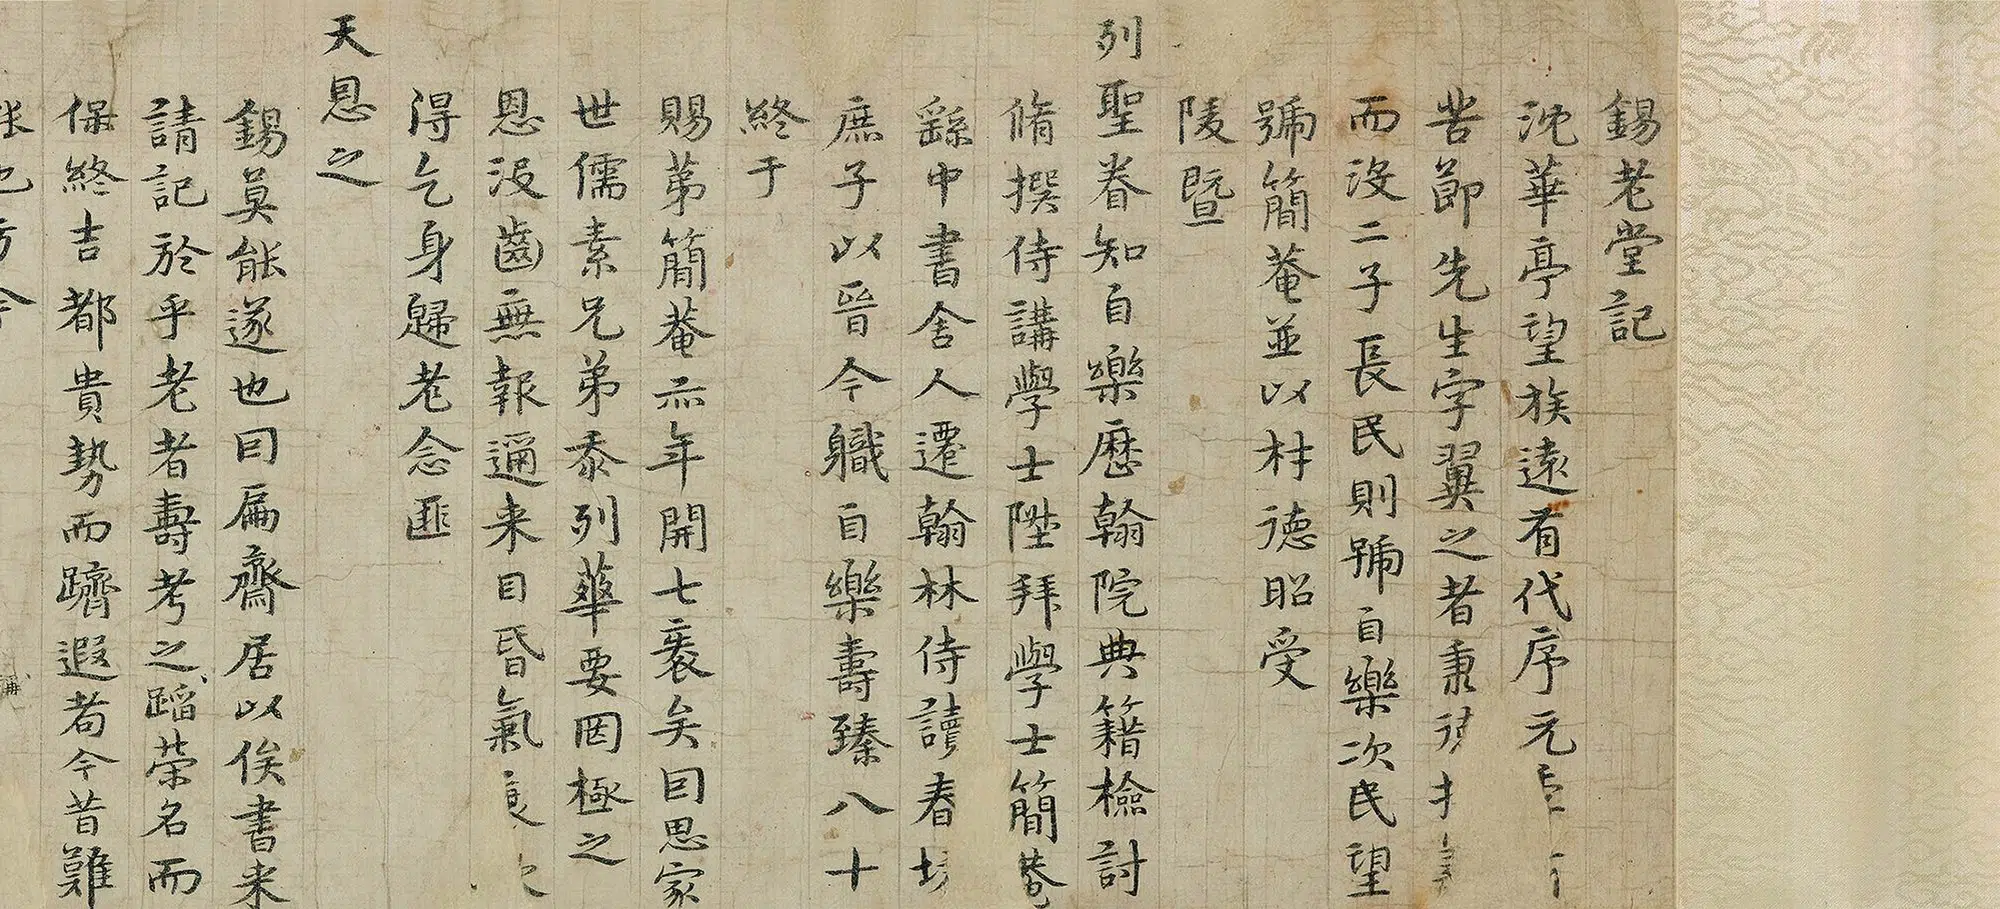 錫老堂記
沈華亭望族遠有代序元
苦節先生字翼之者秉
而沒二子長民則號自樂次民望
號簡菴並以材德昭受
陵曁
列聖眷知自樂歷翰院典籍檢討
脩撰侍講學士陞拜學士簡菴
繇中書舍人遷翰林侍讀春坊
庶子以晉今職自樂壽臻八十
終于
賜苐簡菴亦年開七袠矣囙思家
世儒素兄弟忝列華要罔極之
恩沒齒無報邇来目昏氣衰
得乞身歸老念匪
天恩之
錫莫能遂也囙扁齋居以俟書来
請記於乎老者壽考之蹈榮名而
保終吉都貴勢而躋遐耉今昔難